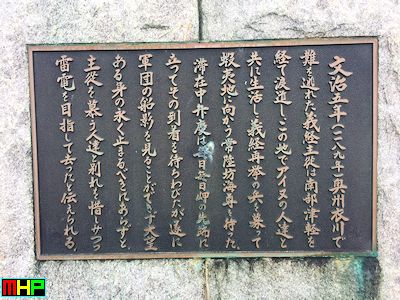 文治五年(一一八九年)奥州衣川で
難を逃れた義経主従は南部津軽を
経て渡道しこの地でアイヌの人達と
共に生活し義経再挙の兵を募って
蝦夷地に向かう常陸坊海尊を待った。
滞在中弁慶は毎日毎日岬の先端に
立ってその到着を待ちわびたが遂に
軍団の船影を見ることができず大望
ある身の永く止まるべきにあらずと
主従を慕う人達と別れを惜しみつつ
雷電を目指して去ったと伝えられる。
MHP